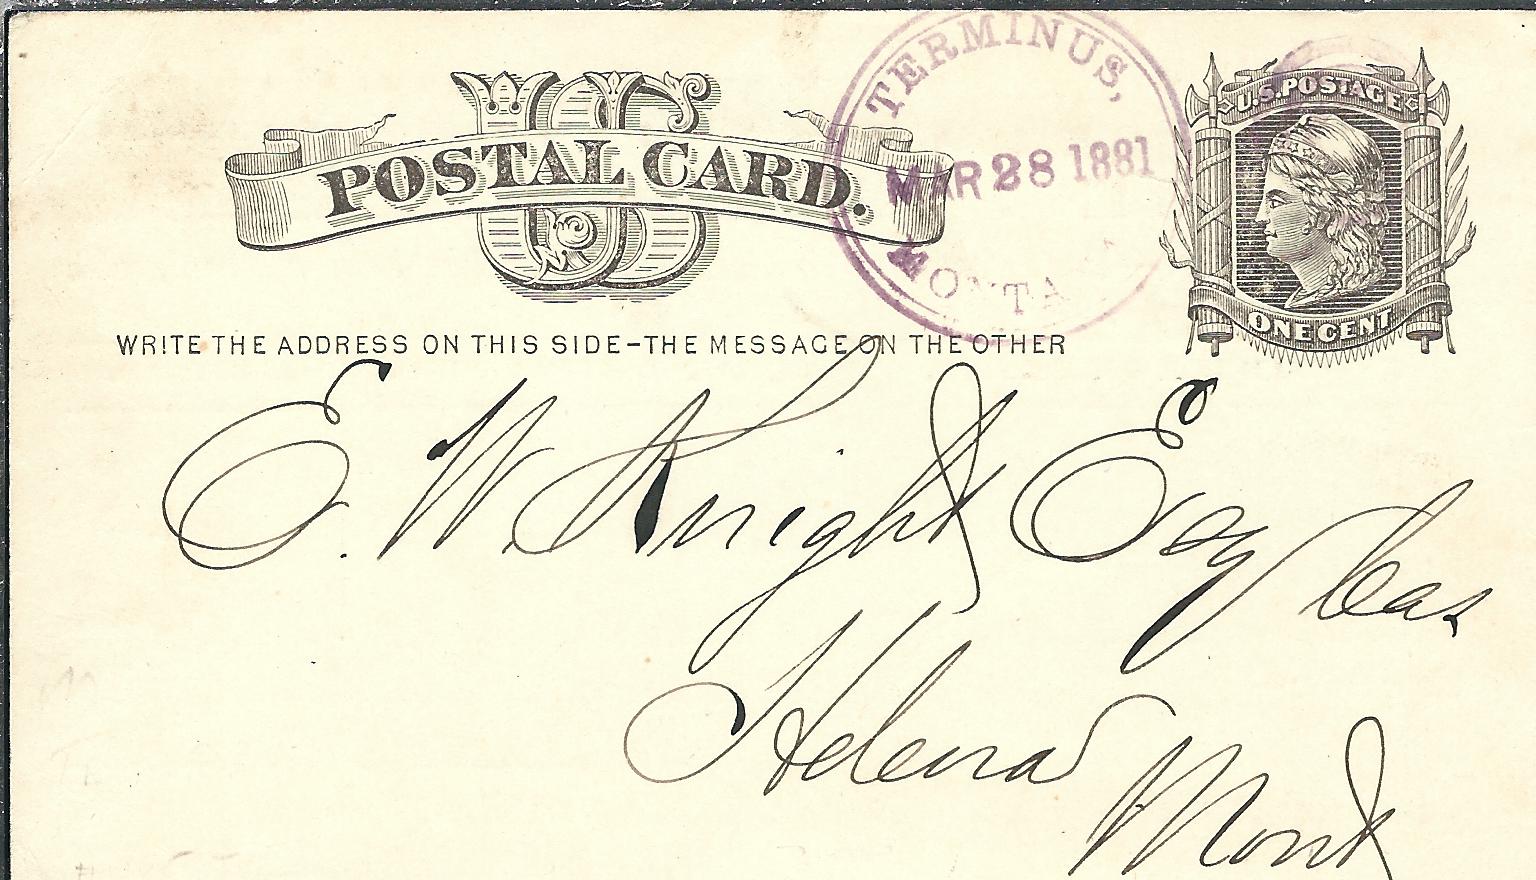 US
POSTAL CARD.
TERMINUS,
MAR 28 1881
MONTA
U.S. POSTAGE
ONE CENT
WRITE THE ADDRESS ON THIS SIDE-THE MESSAGE ON THE OTHER
E. W. Knight Esq Cas.
Helena
Mont